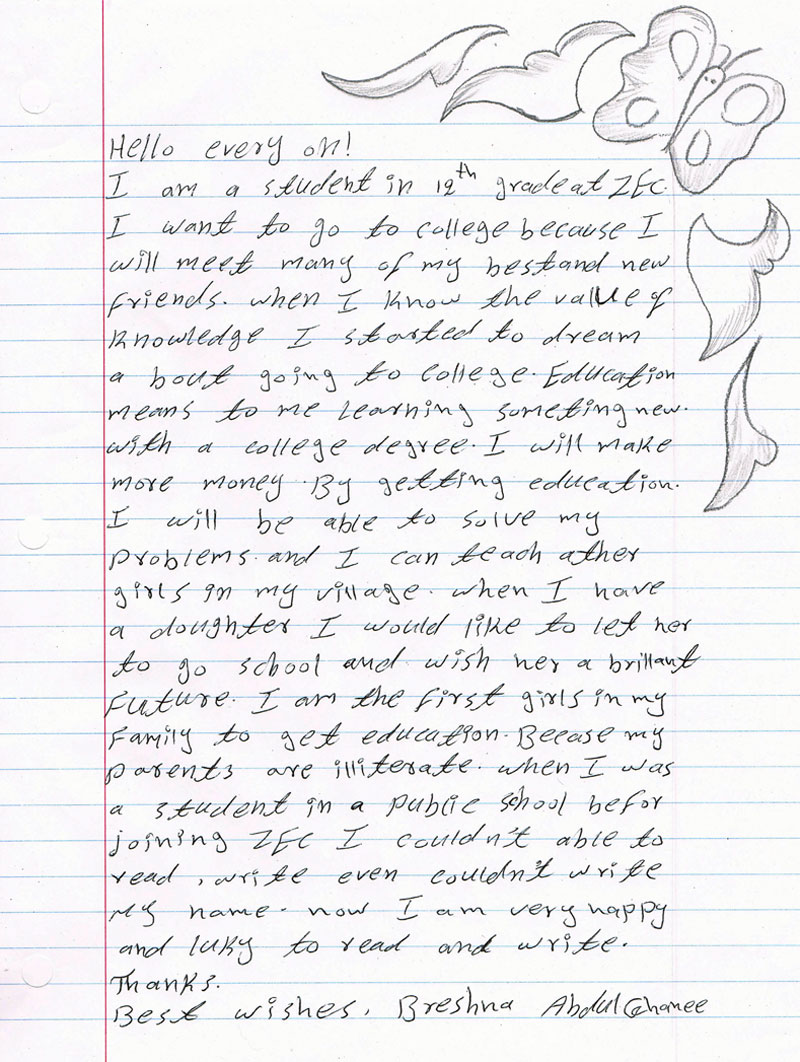 Hello every on!
I am a student in 12th grade at ZEC.
I want to go to college because I
will meet many of my best and new
friends. when I know the value of
knowledge I started to dream
a bout going to college. Education
means to me learning someting new.
with a college degree. I will make
more money. By getting education.
I will be able to solve my
problems. and I can teach ather
girls in my village. when I have
a doughter I would like to let her
to go school and wish her a brillant
future. I am the first girls in my
family to get education. Becase my
parents are illiterate. when I was
a student in a public school befor
joining ZEC I couldn't able to
read, write even couldn't write
my name. now I am very happy
and luky to read and write.
Thanks.
Best wishes, Breshna Abdul Ghanee